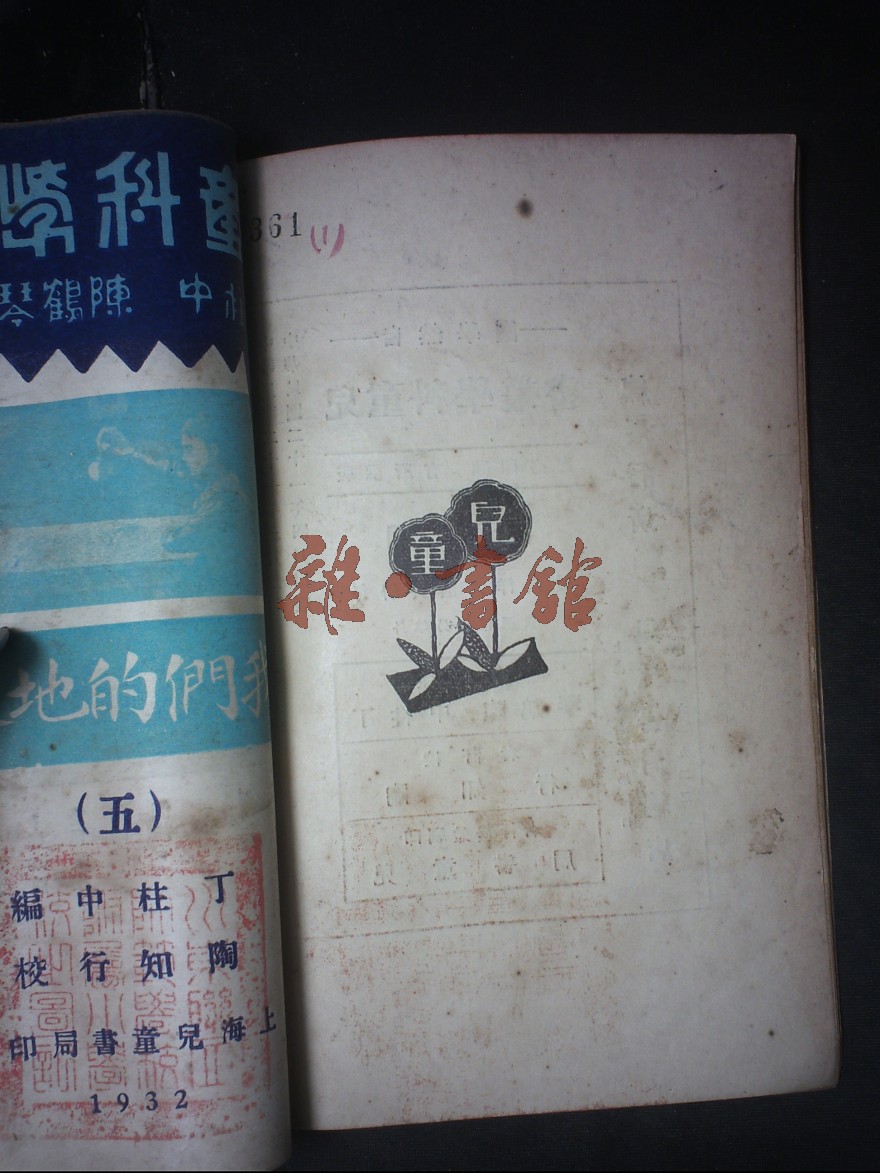 童科學
柱中 陳鶴琴
我們的地
(五)
丁柱中編
陶知行校
上海兒童書局印
1932
361 (1)
兒童
雜·書館